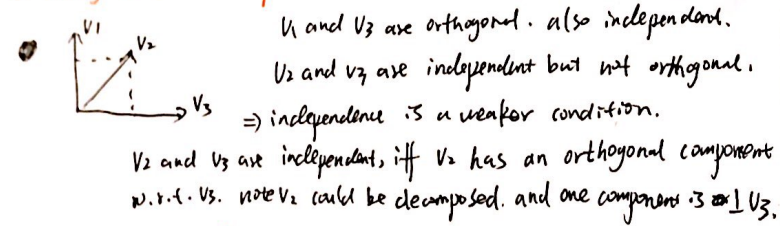 V1
V2
V3
V1 and V3 are orthogonal. also independent.
V2 and V3 are independent but not orthogonal.
⇒ independence is a weaker condition.
V2 and V3 are independent, iff V2 has an orthogonal component
w.r.t. V3. note V2 could be decomposed. and one component is ⊥ V3.